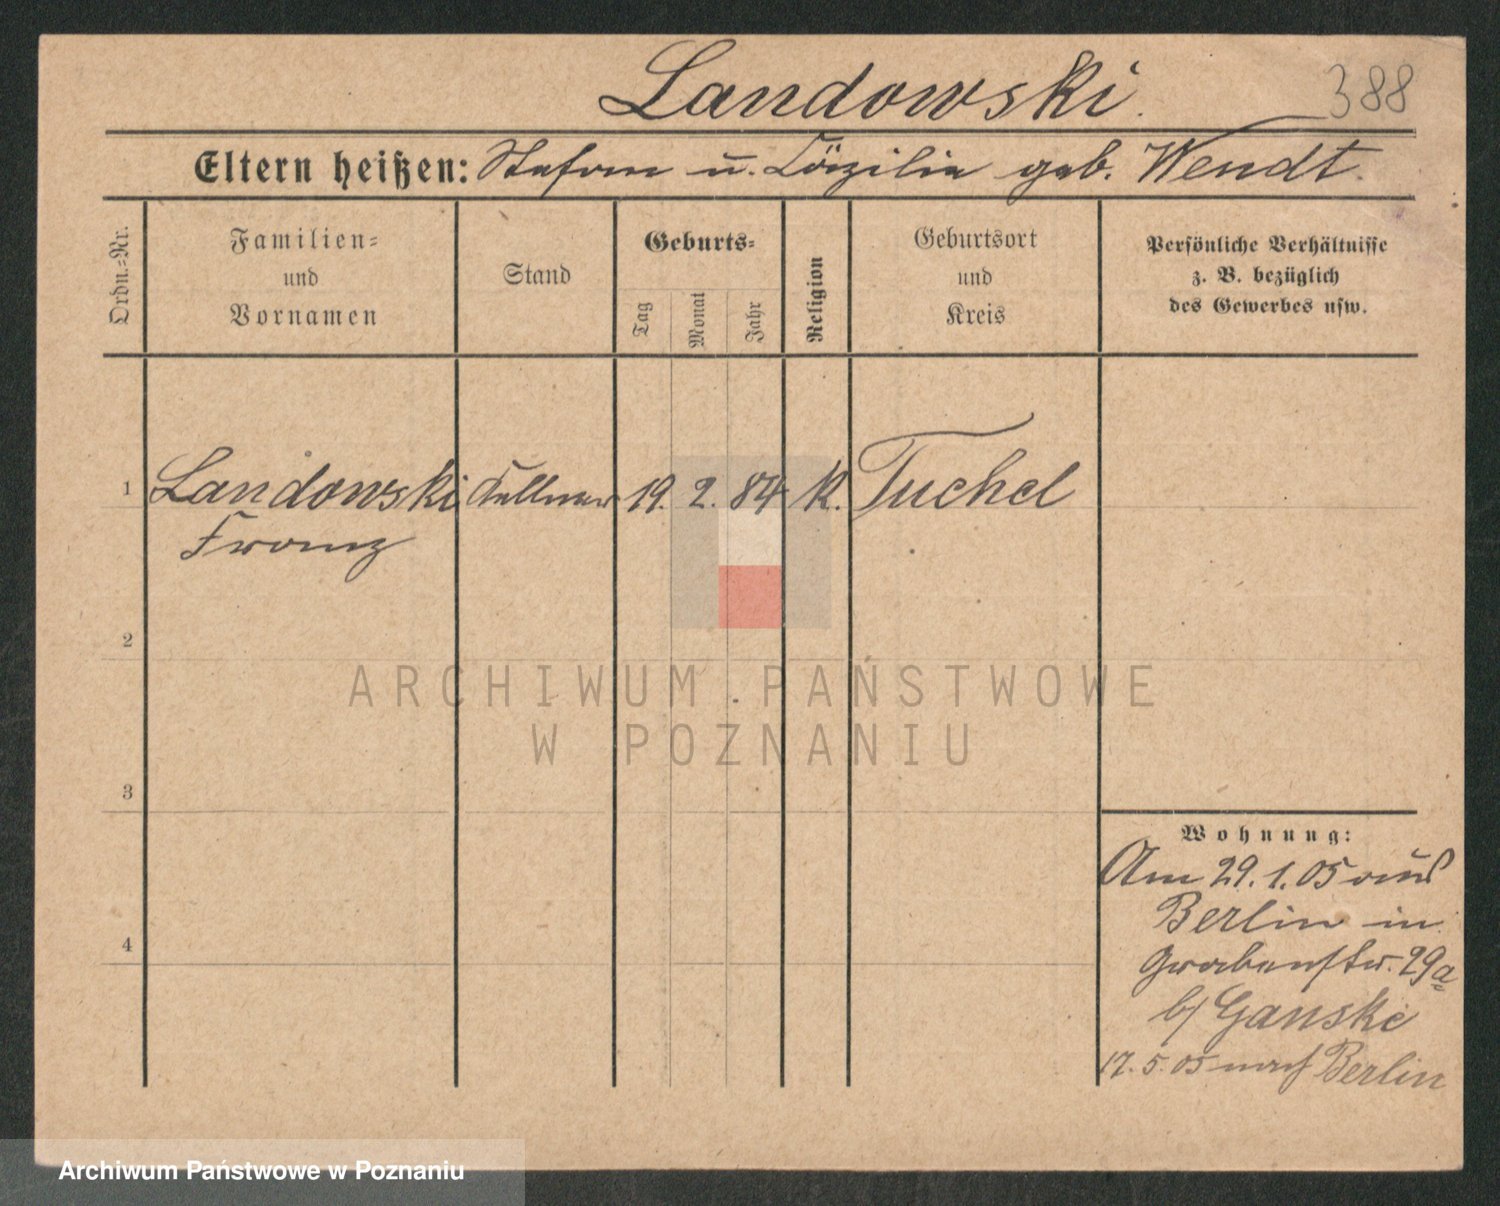 Landowski.
388
Eltern heißen: Stefan u. Cäzilie geb. Wendt.
Ordn.-Nr.
Familien-
und
Vornamen
Stand
Geburts-
Tag
Monat
Jahr
Religion
Geburtsort
und
Kreis
Persönliche Verhältnisse
z. B. bezüglich
des Gewerbes usw.
1 Landowski Kellner 19. 2. 84 K. Tuchel
Franz
2
3
4
Wohnung:
Am 29.1.05 aus
Berlin in
Grabenstr. 29a
b/ Ganske
17.5.05 nach Berlin
ARCHIWUM PAŃSTWOWE
W POZNANIU
Archiwum Państwowe w Poznaniu